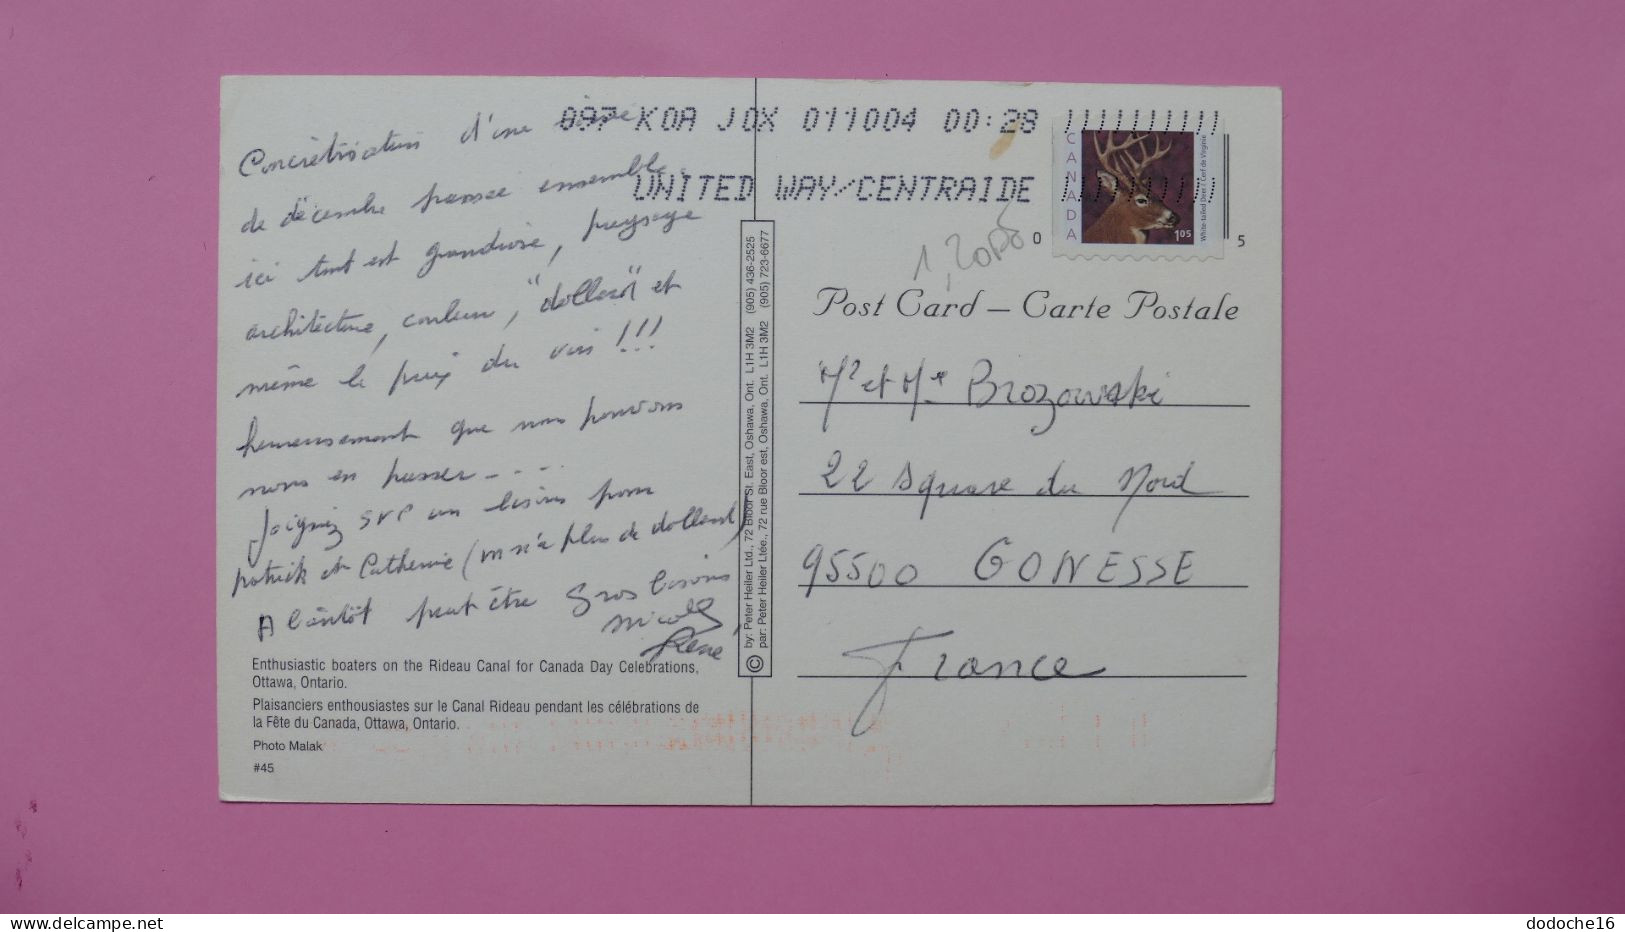 097 KOA JOX 011004 00:28
UNITED WAY/CENTRAIDE
CANADA
White-tailed Deer / Cerf de Virginie
1.05
0 5
Post Card – Carte Postale
Concrétisation d'une
de décembre pensée ensemble.
ici tout est grandiose, paysage
architecture, couleur, "dollard" et
même le prix du vin !!!
heureusement que nous pouvons
nous en passer - - - -
Joignez SVP un bisous pour
patrick et Catherine (on n'a plus de dollard)
A bientôt peut être Gros bisous
Nicole
René
Mr et Me Brozowski
22 square du Nord
95500 GONESSE
France
© by: Peter Heiler Ltd., 72 Bloor St. East, Oshawa, Ont. L1H 3M2 (905) 436-2525
par: Peter Heiler Ltée., 72 rue Bloor est, Oshawa, Ont. L1H 3M2 (905) 723-6677
Enthusiastic boaters on the Rideau Canal for Canada Day Celebrations,
Ottawa, Ontario.
Plaisanciers enthousiastes sur le Canal Rideau pendant les célébrations de
la Fête du Canada, Ottawa, Ontario.
Photo Malak
#45
delcampe.net
dodoche16